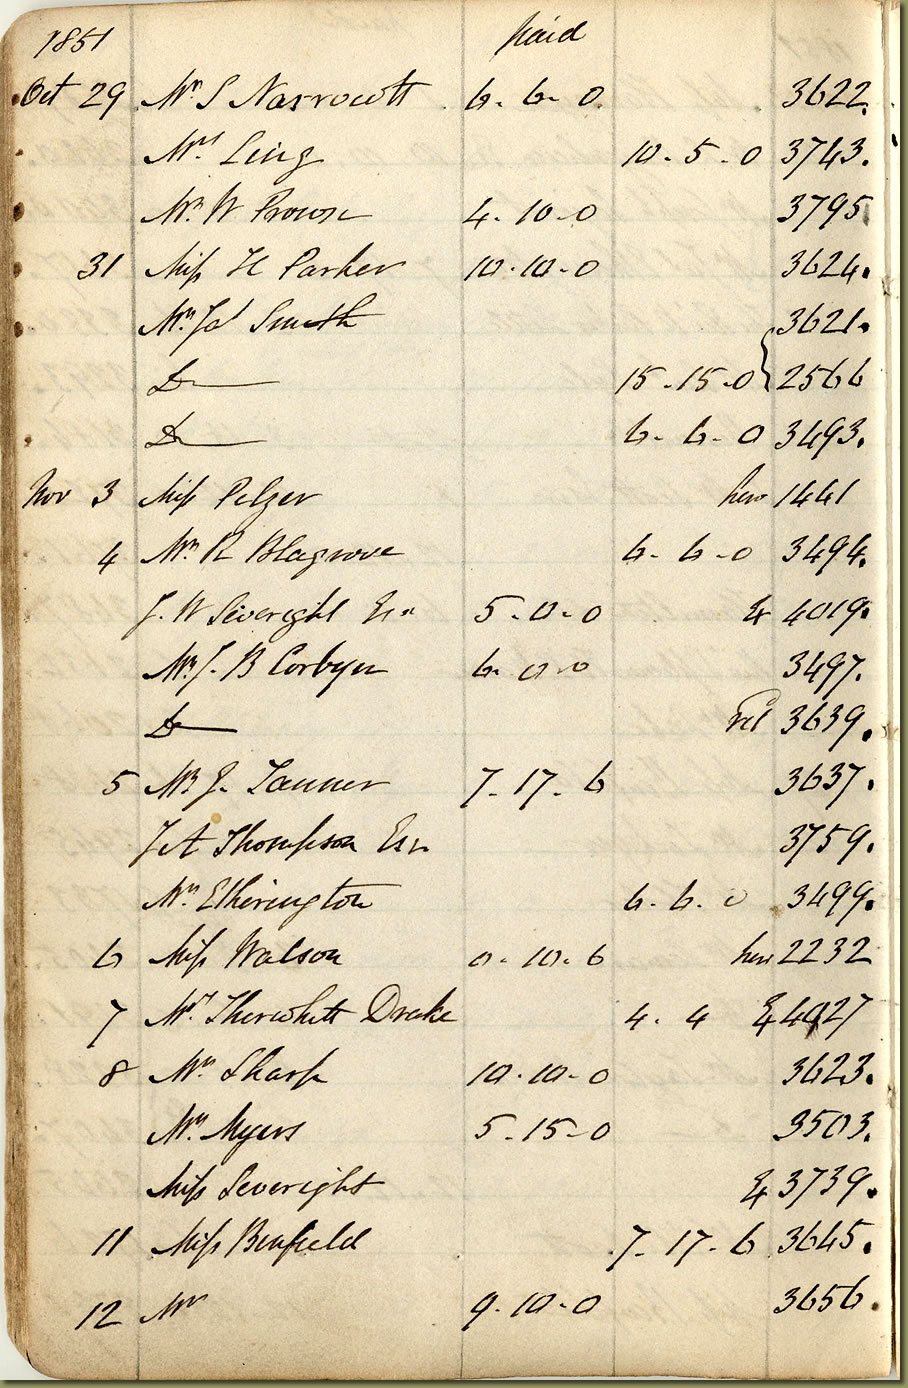 1851 paid
Oct 29 Mr S Narrowott 6-6-0 3622.
Mrs Ling 10-5-0 3743.
Mr W Prowse 4-10-0 3795
31 Miss H Parker 10-10-0 3624.
Mr Jas Smith 3621.
Do 15-15-0 2566
Do 6-6-0 3493.
Nov 3 Miss Pelzer hire 1441
4 Mr R Blagrove 6-6-0 3494.
J. W Siveright Esr 5-0-0 & 4019.
Mr J. B Corbyn 6-0-0 3497.
Do 3639.
5 Mr J. Tanner 7-17-6 3637.
J A Thompson Esr 3759.
Mr Etherington 6-6-0 3499.
6 Miss Watson 0-10-6 hire 2232
7 Mrs Therwhitt Drake 4-4 & 4027
8 Mr Sharp 10-10-0 3623.
Mr Myers 5-15-0 3503.
Miss Severight & 3739.
11 Miss Binfield 7-17-6 3645.
12 Mr 9-10-0 3656.